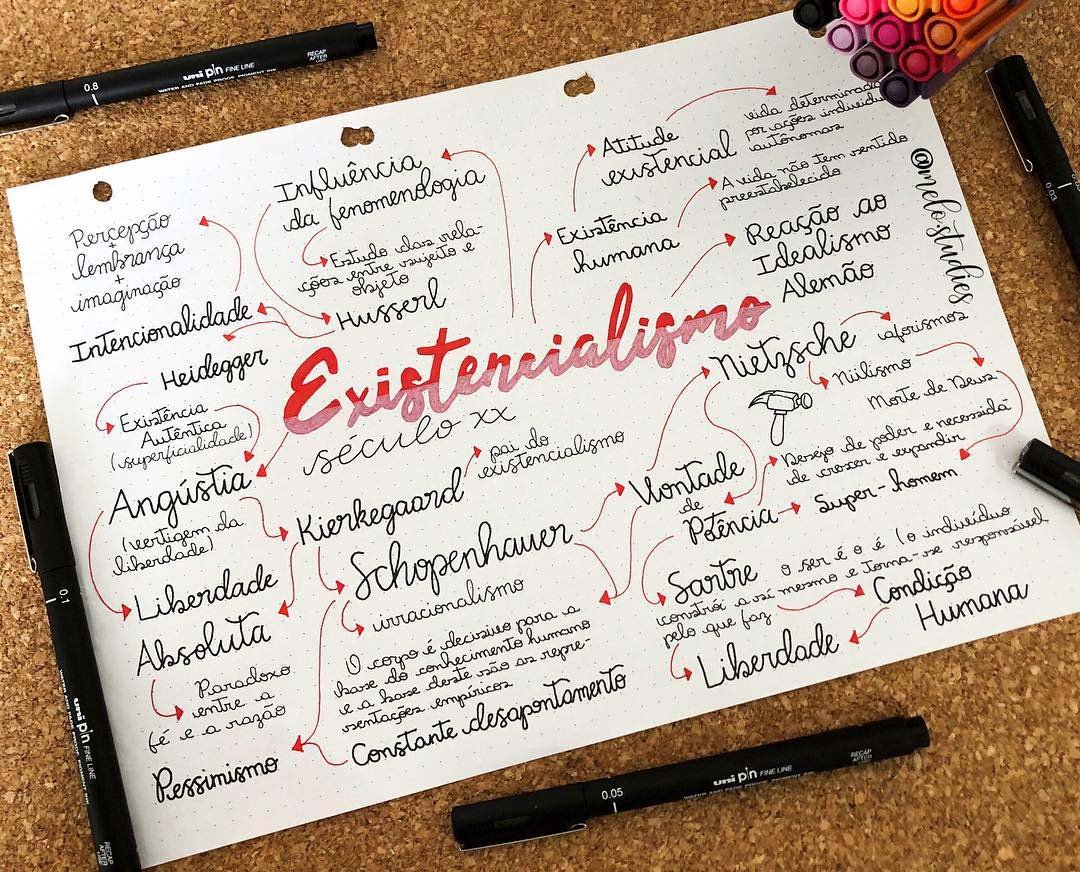 0.8
uni pin FINE LINE
WATER AND FADE PROOF PIGMENT INK
RECAP
AFTER
Influência
da fenomenologia
Estudo das rela-
ções entre sujeito e
objeto
Percepção
+
lembrança
+
imaginação
Intencionalidade
Husserl
Heidegger
Existência
Autêntica
(superficialidade)
Atitude
existencial
vida determinada
por ações individu
autônomas
Existência
humana
A vida não tem sentido
preestabelecido
Reação ao
Idealismo
Alemão
@melostudies
0.03
Existencialismo
século xx
Angústia
(vertigem da
liberdade)
Liberdade
Absoluta
Paradoxo
entre a
fé e a razão
Pessimismo
Kierkegaard
pai do
existencialismo
Schopenhauer
irracionalismo
O corpo é decisivo para a
base do conhecimento humano
e a base deste são as repre-
sentações empíricas
Constante desapontamento
Nietzsche
aforismos
Niilismo
Morte de Deus
Vontade
de
Potência
Desejo de poder e necessida
de crescer e expandir
Super-homem
Sartre
o ser é o é (o indivíduo
constrói a si mesmo e torna-se responsável
pelo que faz
Condição
Humana
Liberdade
0.1
uni pin FINE LINE
RECAP
AFTER
0.05
uni pin FINE LINE
WATER AND FADE PROOF PIGMENT INK
RECAP
AFTER